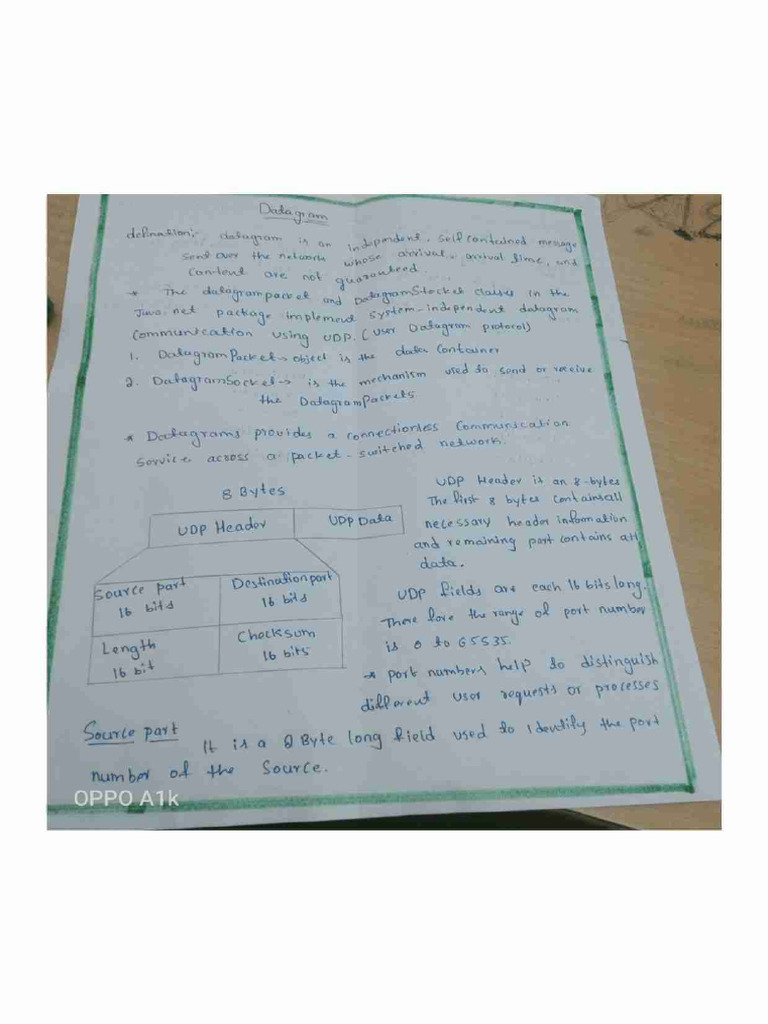 Datagram
defination:- datagram is an independent, self contained message
send over the network whose arrival, arrival time, and
content are not guaranteed.
* The datagrampacket and DatagramStocket classes in the
Java.net package implement system-independent datagram
Communication using UDP. (User Datagram protocol)
1. DatagramPacket-> object is the data container
2. DatagramSocket-> is the mechanism used to send or receive
the DatagramPackets.
* Datagrams provides a connectionless Communication
Service across a packet-switched network.
8 Bytes
UDP Header
UDP Data
Source part
16 bits
Destination part
16 bits
Length
16 bit
Checksum
16 bits
UDP Header is an 8-bytes
The first 8 bytes contains all
necessary header information
and remaining part contains all
data.
UDP fields are each 16 bits long.
There fore the range of port number
is 0 to 65535.
* port numbers help to distinguish
different user requests or processes
Source part
It is a 8 Byte long field used to identify the port
number of the Source.
OPPO A1k